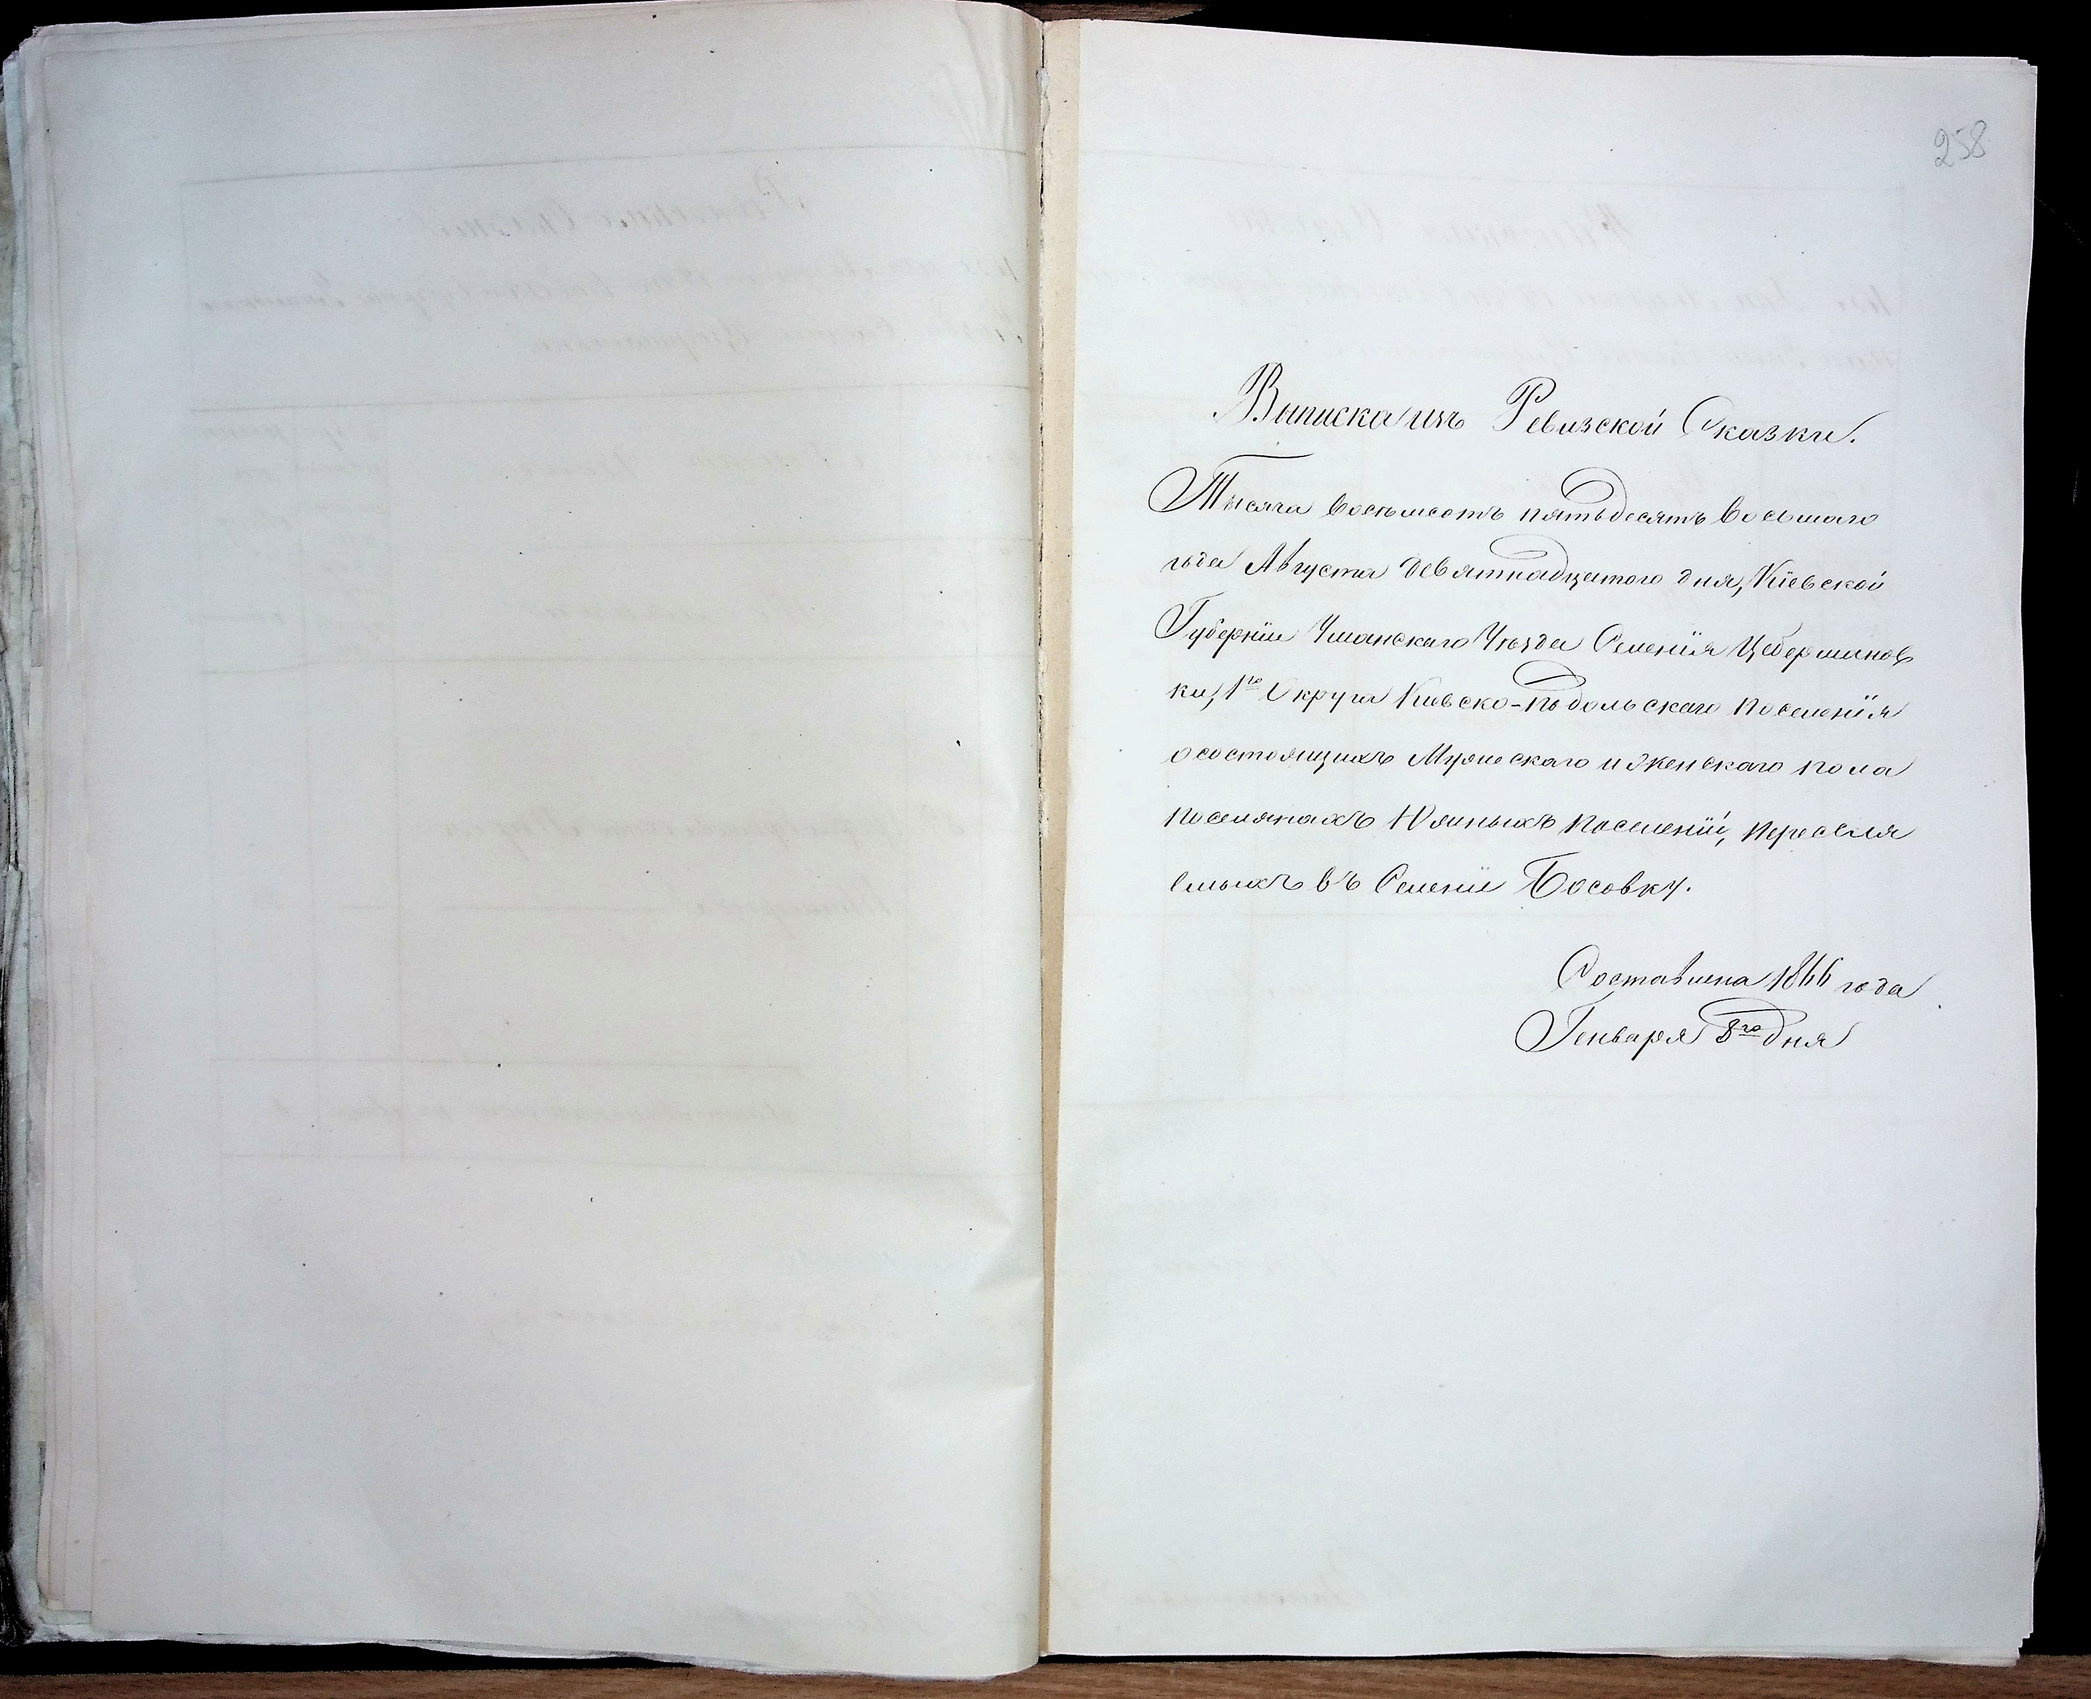 258
Выписка изъ Ревизской Сказки.
Тысяча восемьсотъ пятьдесятъ восьмаго
года Августа девятнадцатого дня, Кіевской
Губерніи Уманскаго Уѣзда Селенія Цеберманов
ки, 1го Округа Киевско-Подольскаго поселенія
о состоящихъ Мужескаго и женскаго пола
поселянахъ Южныхъ поселеній, переселя
емыхъ въ Селеніе Босовку.
Составлена 1866 года
Генваря 8го дня